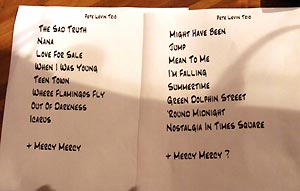 Pete Levin Trio
The Sad Truth
Nana
Love For Sale
When I Was Young
Teen Town
Where Flamingos Fly
Out Of Darkness
Icarus
+ Mercy Mercy
Pete Levin Trio
Might Have Been
Jump
Mean To Me
I'm Falling
Summertime
Green Dolphin Street
'Round Midnight
Nostalgia In Times Square
+ Mercy Mercy ?